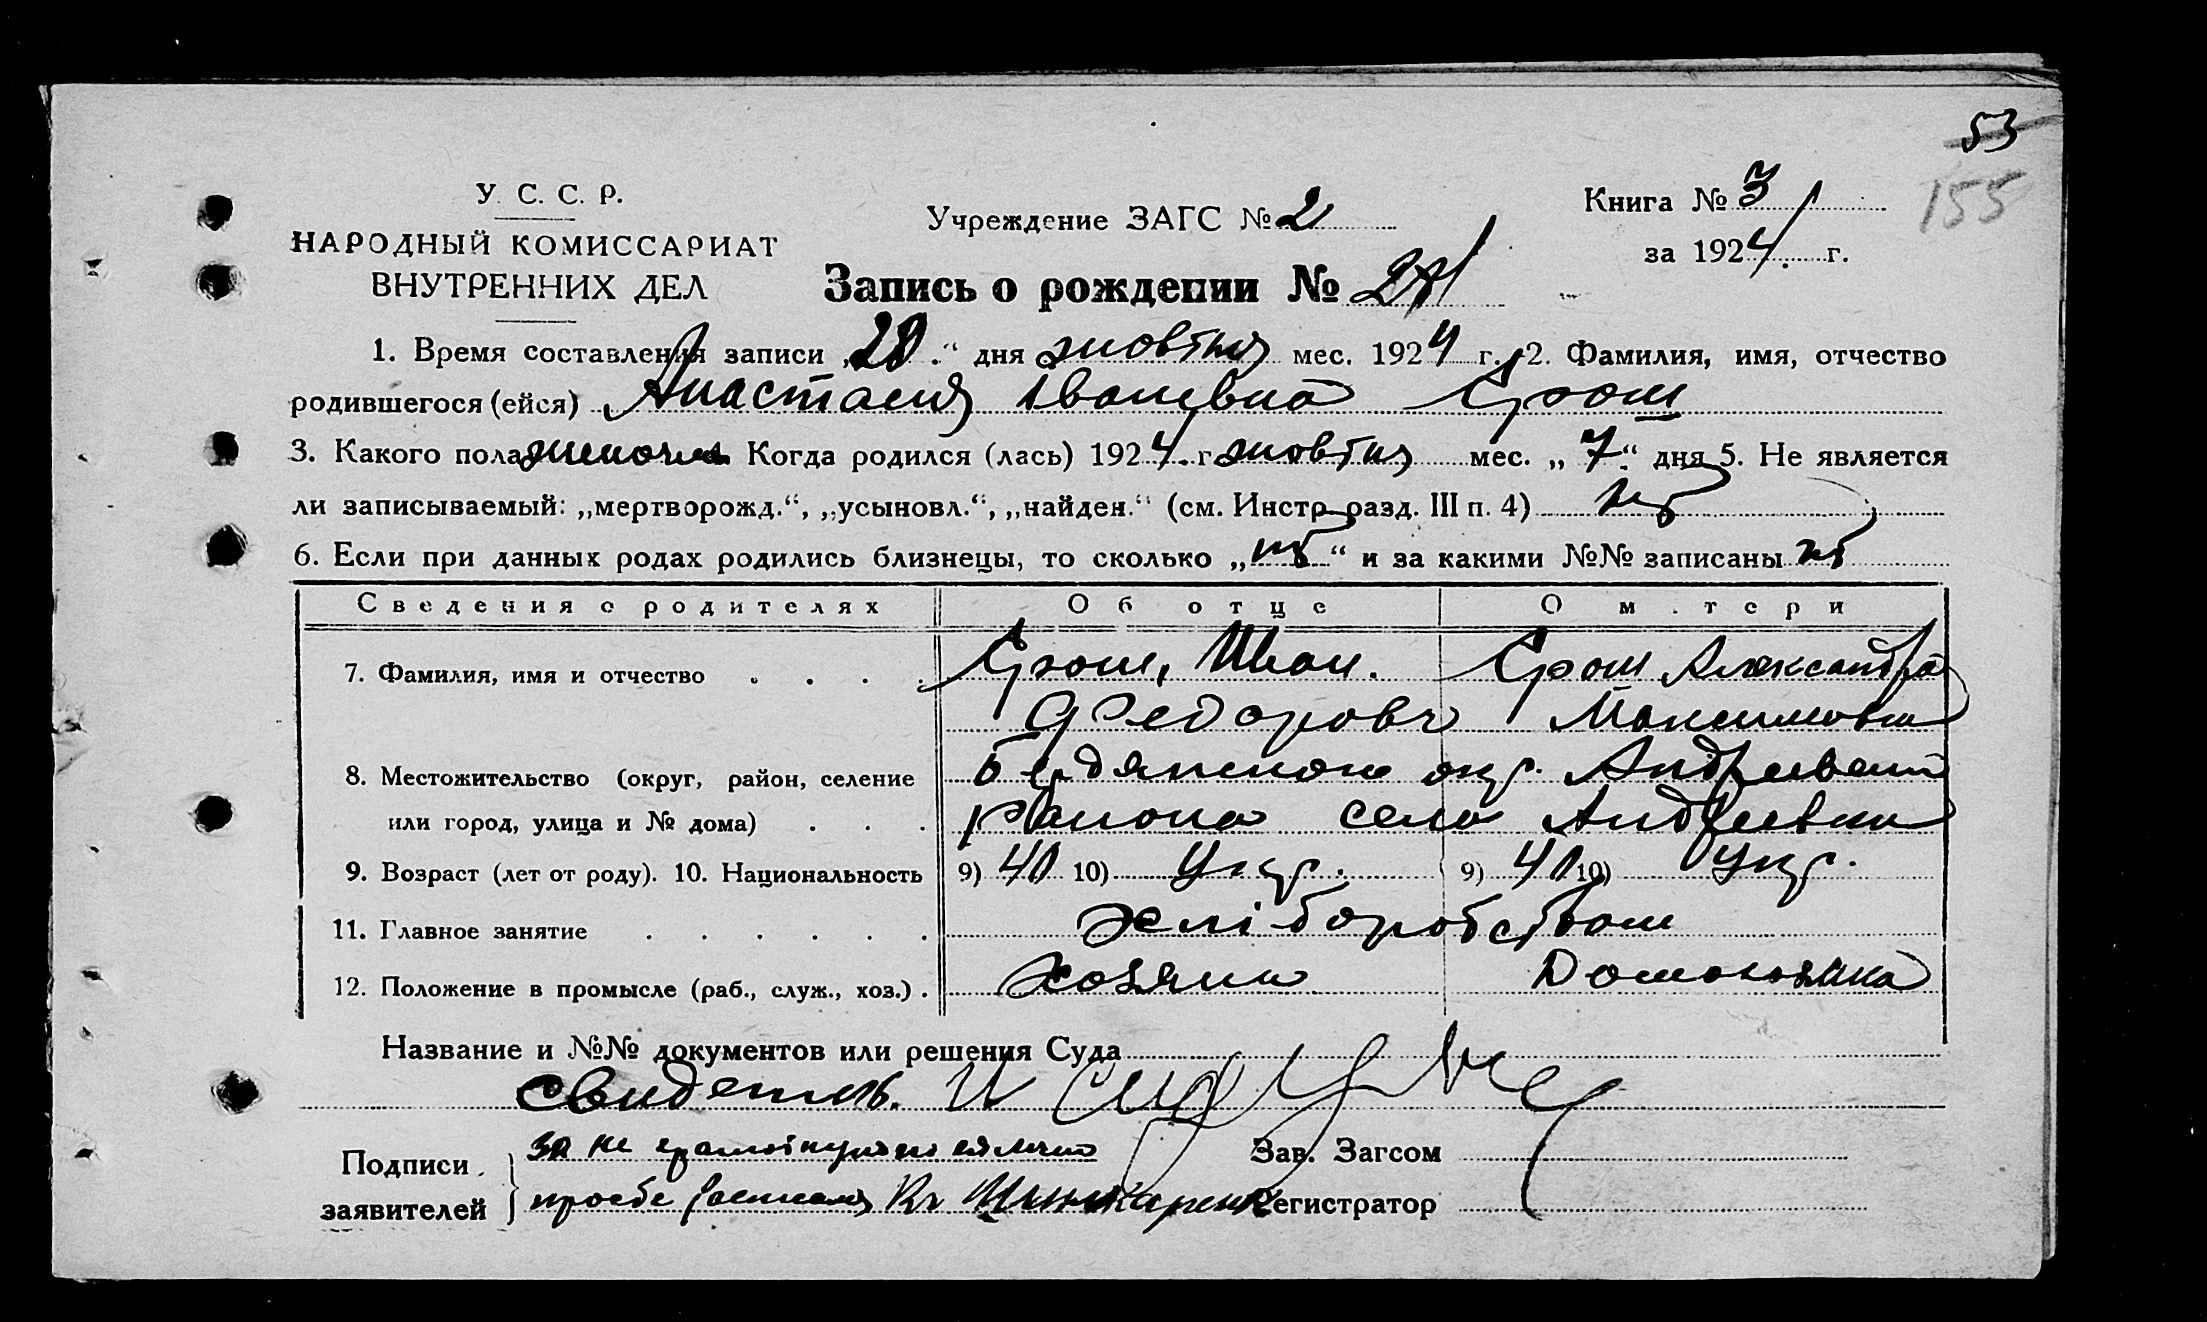 53
155
У. С. С. Р.
НАРОДНЫЙ КОМИССАРИАТ
ВНУТРЕННИХ ДЕЛ
Учреждение ЗАГС № 2
Книга № 3
за 1924 г.
Запись о рождении №
1. Время составления записи „28“ дня жовтня мес. 1924 г. 2. Фамилия, имя, отчество
родившегося (ейся) Анастасия Івановна
3. Какого пола Когда родился (лась) 1924 г. жовтня мес. „7“ дня 5. Не является
ли записываемый: „мертворожд.“, „усыновл.“, „найден.“ (см. Инстр. разд. III п. 4) нт
6. Если при данных родах родились близнецы, то сколько „нт“ и за какими №№ записаны нт
Сведения о родителях Об отце О м тери
7. Фамилия, имя и отчество Иван. Александра
Федорович Максимовна
8. Местожительство (округ, район, селение Андреевский
или город, улица и № дома) района село Андреевки
9. Возраст (лет от роду). 10. Национальность 9) 40 10) Укр. 9) 40 10) Укр.
11. Главное занятие хліборобством
12. Положение в промысле (раб., служ., хоз.) хозяин Домохозяйка
Название и №№ документов или решения Суда
свидетель. И
Подписи за не
заявителей просьбе
Зав. Загсом
Регистратор